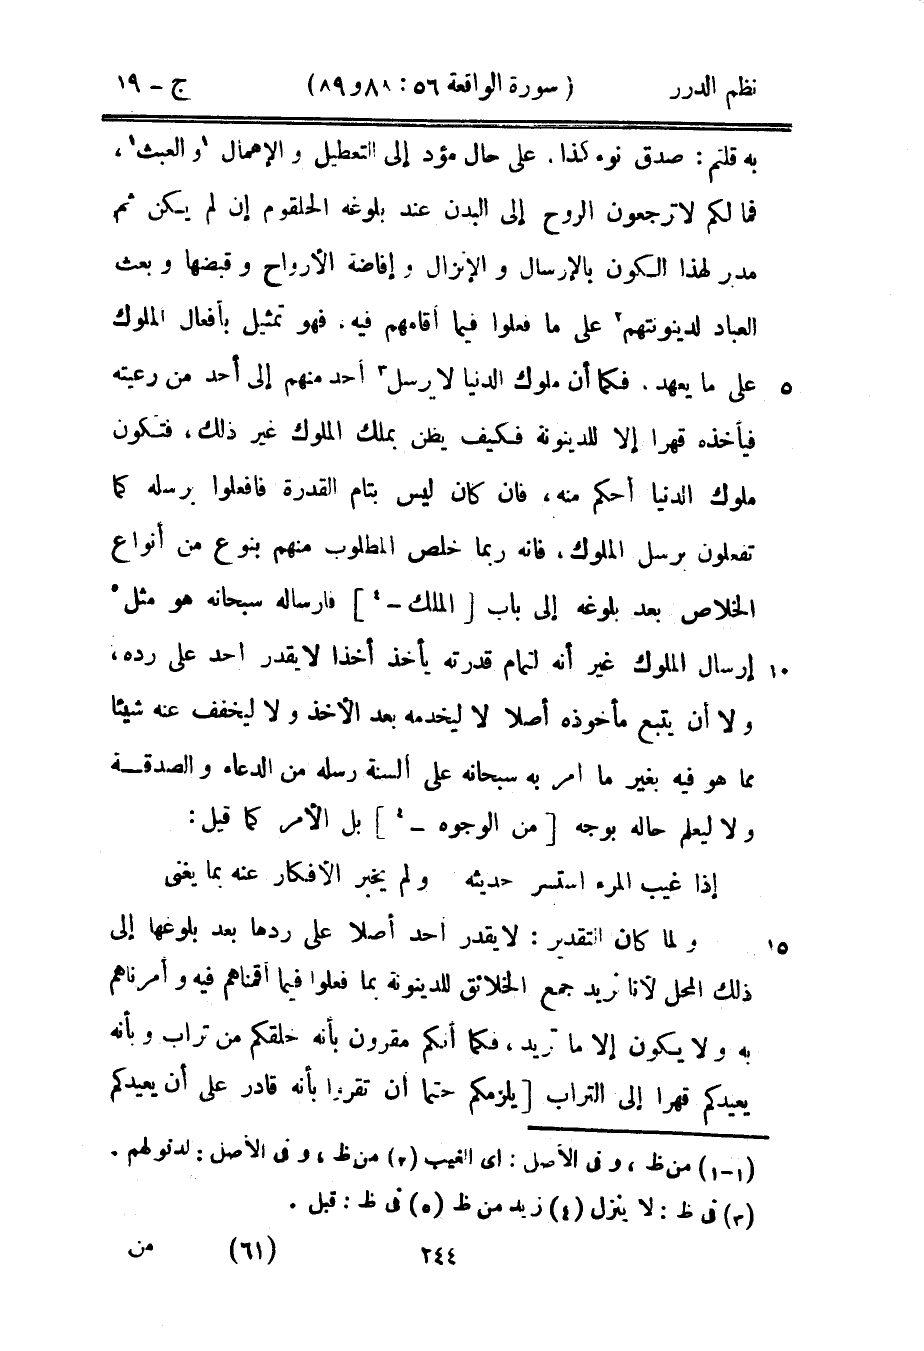 نظم الدرر ( سورة الواقعة ٥٦ : ٨٨ و ٨٩ ) ج - ١٩
به قلتم : صدق نوء كذا . على حال مؤد إلى التعطيل و الإهمال ١و العبث١ ،
فما لكم لا ترجعون الروح إلى البدن عند بلوغه الحلقوم إن لم يكن ثم
مدبر لهذا الكون بالإرسال و الإنزال و إفاضة الأرواح و قبضها و بعث
العباد لدينونتهم٢ على ما فعلوا فيما أقامهم فيه . فهو تمثيل بأفعال الملوك
على ما يعهد . فكما أن ملوك الدنيا لا يرسل٣ أحد منهم إلى أحد من رعيته ٥
فيأخذه قهرا إلا للدينونة فكيف يظن بملك الملوك غير ذلك ، فتكون
ملوك الدنيا أحكم منه ، فان كان ليس بتام القدرة فافعلوا برسله كما
تفعلون برسل الملوك ، فانه ربما خلص المطلوب منهم بنوع من أنواع
الخلاص بعد بلوغه إلى باب [ الملك - ٤ ] فارساله سبحانه هو مثل٥
إرسال الملوك غير أنه لتمام قدرته يأخذ أخذا لا يقدر أحد على رده ، ١٠
و لا أن يتبع مأخوذه أصلا لا ليخدمه بعد الأخذ و لا ليخفف عنه شيئا
مما هو فيه بغير ما أمر به سبحانه على ألسنة رسله من الدعاء و الصدقة
و لا ليعلم حاله بوجه [ من الوجوه - ٤ ] بل الأمر كما قيل :
إذا غيب المرء استسر حديثه و لم يخبر الأفكار عنه بما يغنى
و لما كان التقدير : لا يقدر أحد أصلا على ردها بعد بلوغها إلى ١٥
ذلك المحل لأنا نريد جمع الخلائق للدينونة بما فعلوا فيما أقمناهم فيه و أمرناهم
به و لا يكون إلا ما نريد ، فكما أنكم مقرون بأنه خلقكم من تراب و بأنه
يعيدكم قهرا إلى التراب [ يلزمكم حتما أن تقروا بأنه قادر على أن يعيدكم
(١-١) من ظ ، و فى الأصل : اى الغيب (٢) من ظ ، و فى الأصل : لدنولهم .
(٣) فى ظ : لا ينزل (٤) زيد من ظ (٥) فى ظ : قبل .
٢٤٤ (٦١) من